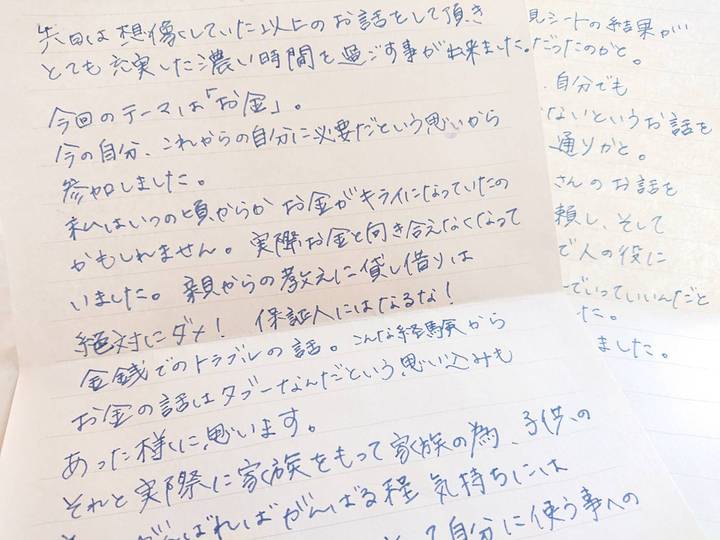 先日は想像していた以上のお話をして頂き
とても充実した濃い時間を過ごす事が出来ました。
今回のテーマは「お金」。
今の自分、これからの自分に必要だという思いから
参加しました。
私はいつの頃からかお金がキライになっていたの
かもしれません。実際お金と向き合えなくなって
いました。親からの教えに貸し借りは
絶対にダメ！保証人にはなるな！
金銭でのトラブルの話。こんな経験から
お金の話はタブーなんだという思い込みも
あった様に思います。
それと実際に家族をもって家族の為、子供の
がんばればがんばる程 気持ちには
て自分に使う事への
見シートの結果が
だったのかと。
自分でも
ないというお話を
通りかと。
さんのお話を
頼し、そして
で人の役に
でいっていいんだと
た。
ました。